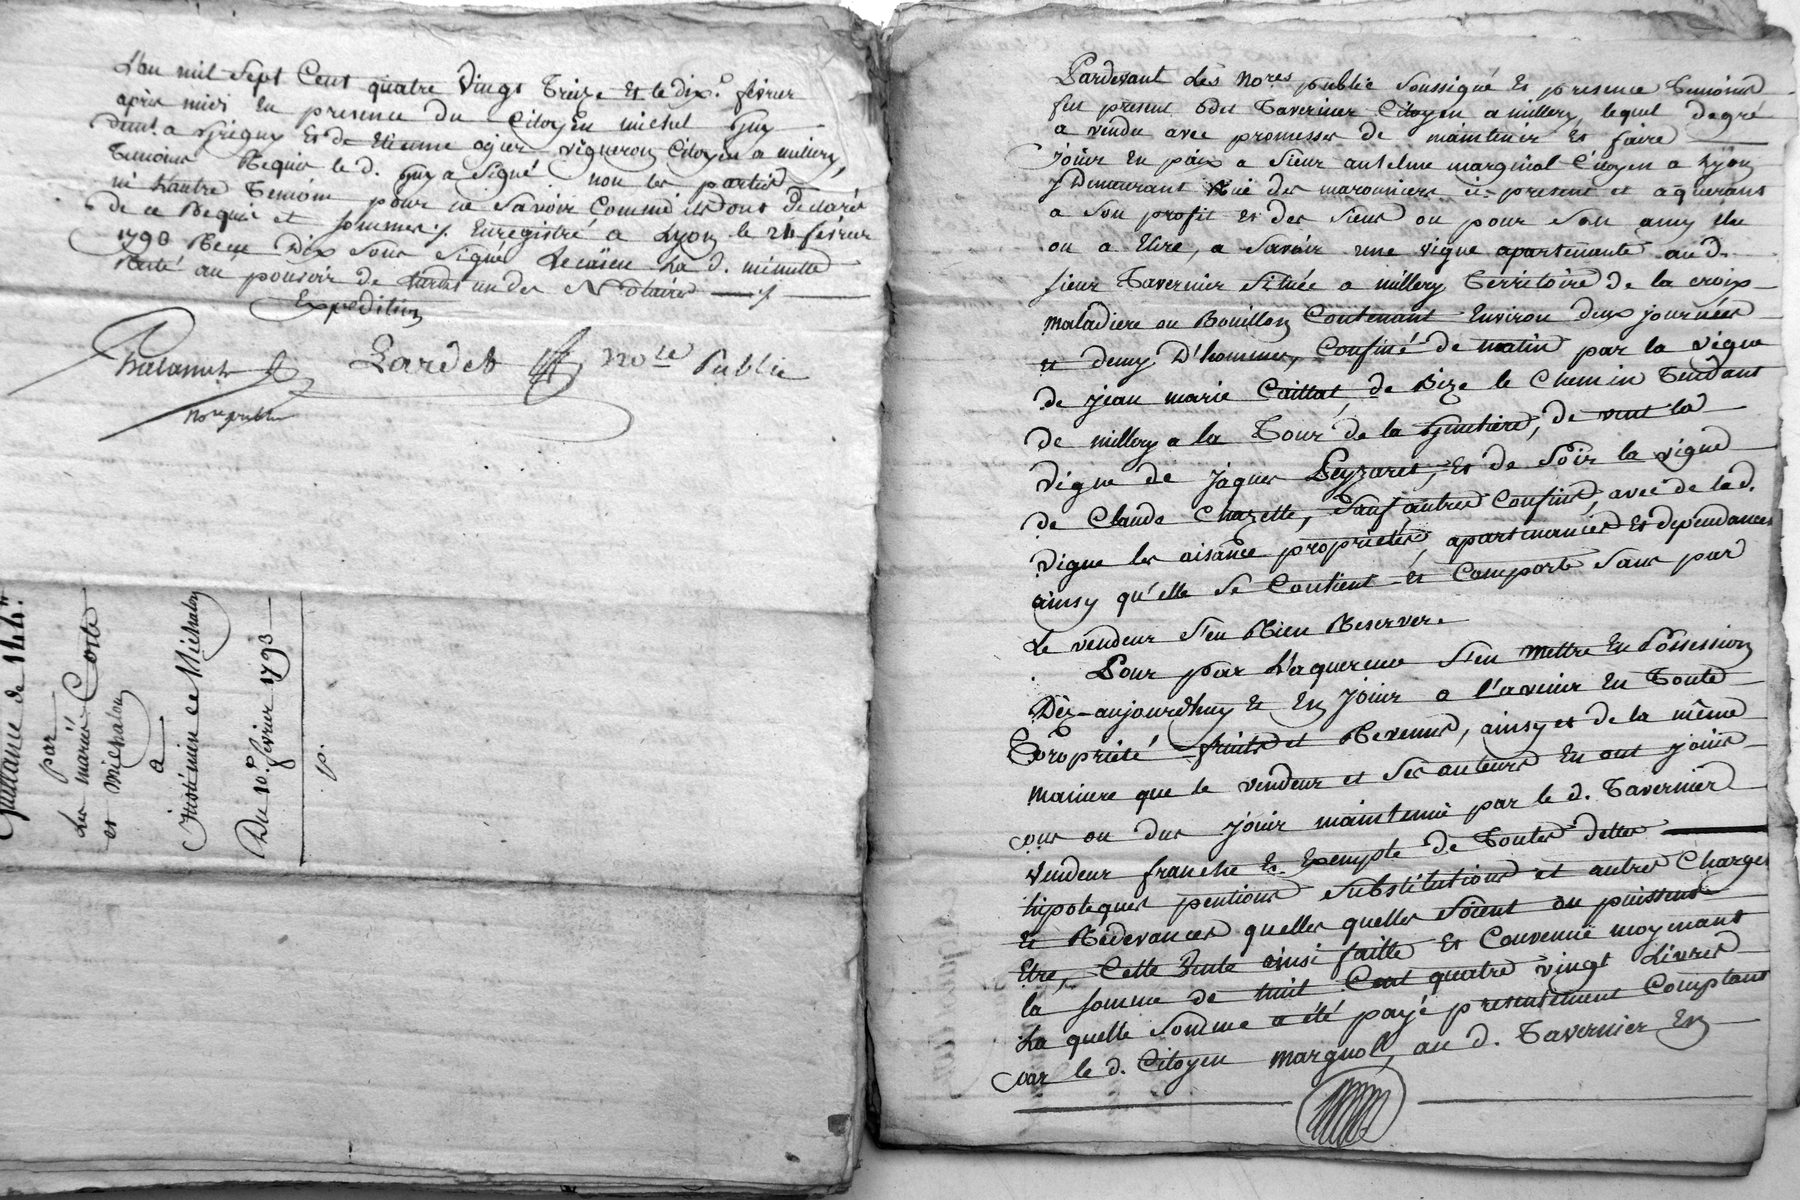 L'an mil sept Cent quatre vingt Treize et le dix.e fevrier
après midi En presence du Citoyen michel Guy
demt. a Grigny Et de Etienne ogier vigneron Citoyen a millery,
Temoins Requis le d. Guy a Signé non les parties
ni L'autre Temoin pour ne Savoir Comme ils ont declaré
de ce Requis et sommés ./. Enregistré a Lyon le 21 fevrier
1793 Reçu Dix Sous Signé La d. minutte
Resté au pouvoir de Lardet un des Notaires ./.
Expedition
Lardet nore Public
nore public
Quittance de 144#
par
Les mariés Coste
et Michalon
a
Michalon
Du 10.e fevrier 1793
p.
Pardevant Les Nores public soussigné Et presence Temoins
fut present Tavernier Citoyen a millery, lequel de gré
a vendu avec promesses de maintenir Et faire
Jouir En paix a Sieur anselme margniol Citoyen a Lyon
y Demeurant Rüe des maronniers ici present et aquerant
a Son profit Et des Siens ou pour Son amy élu
ou a Elire, a Savoir une vigne apartenante aud.
sieur Tavernier Située a millery Territoire de la croix
maladiere ou Bouillon Contenant Environ deux journées
et demy D'hommes, Confiné de matin par la vigne
de Jean marie Caillat, de Bize le Chemin Tendant
de millery a la Tour de la, de vent la
vigne de Jaques Peyzaret, Et de Soir la vigne
de Claude Chazette, Sauf autres Confins, avec de lad.
vigne les aisance proprietés, apartenances Et dependances
ainsy qu'elle Se Contient Et Comporte Sans par
Le vendeur S'en Rien Reserver.
Pour par L'aquereur S'en mettre En Possession
Dèz-aujourdhuy Et En Jouir a l'avenir En Toute
Propriété fruits et Revenus, ainsy et de la même
maniere que le vendeur et Ses auteurs En ont jouis
ous ou dus jouir maintenüe par le d. Tavernier
vendeur franche Et Exempte de Toutes dettes
hipoteques pentions Substitutions et autres Charges
Et Redevances quelles quelles Soient ou puissent
Etre, Cette Vente ainsi faitte Et Convenüe moyenant
la somme de huit Cent quatre vingt Livres
La quelle Somme a été payé presentement Comptant
par le d. Citoyen margniol, au d. Tavernier En